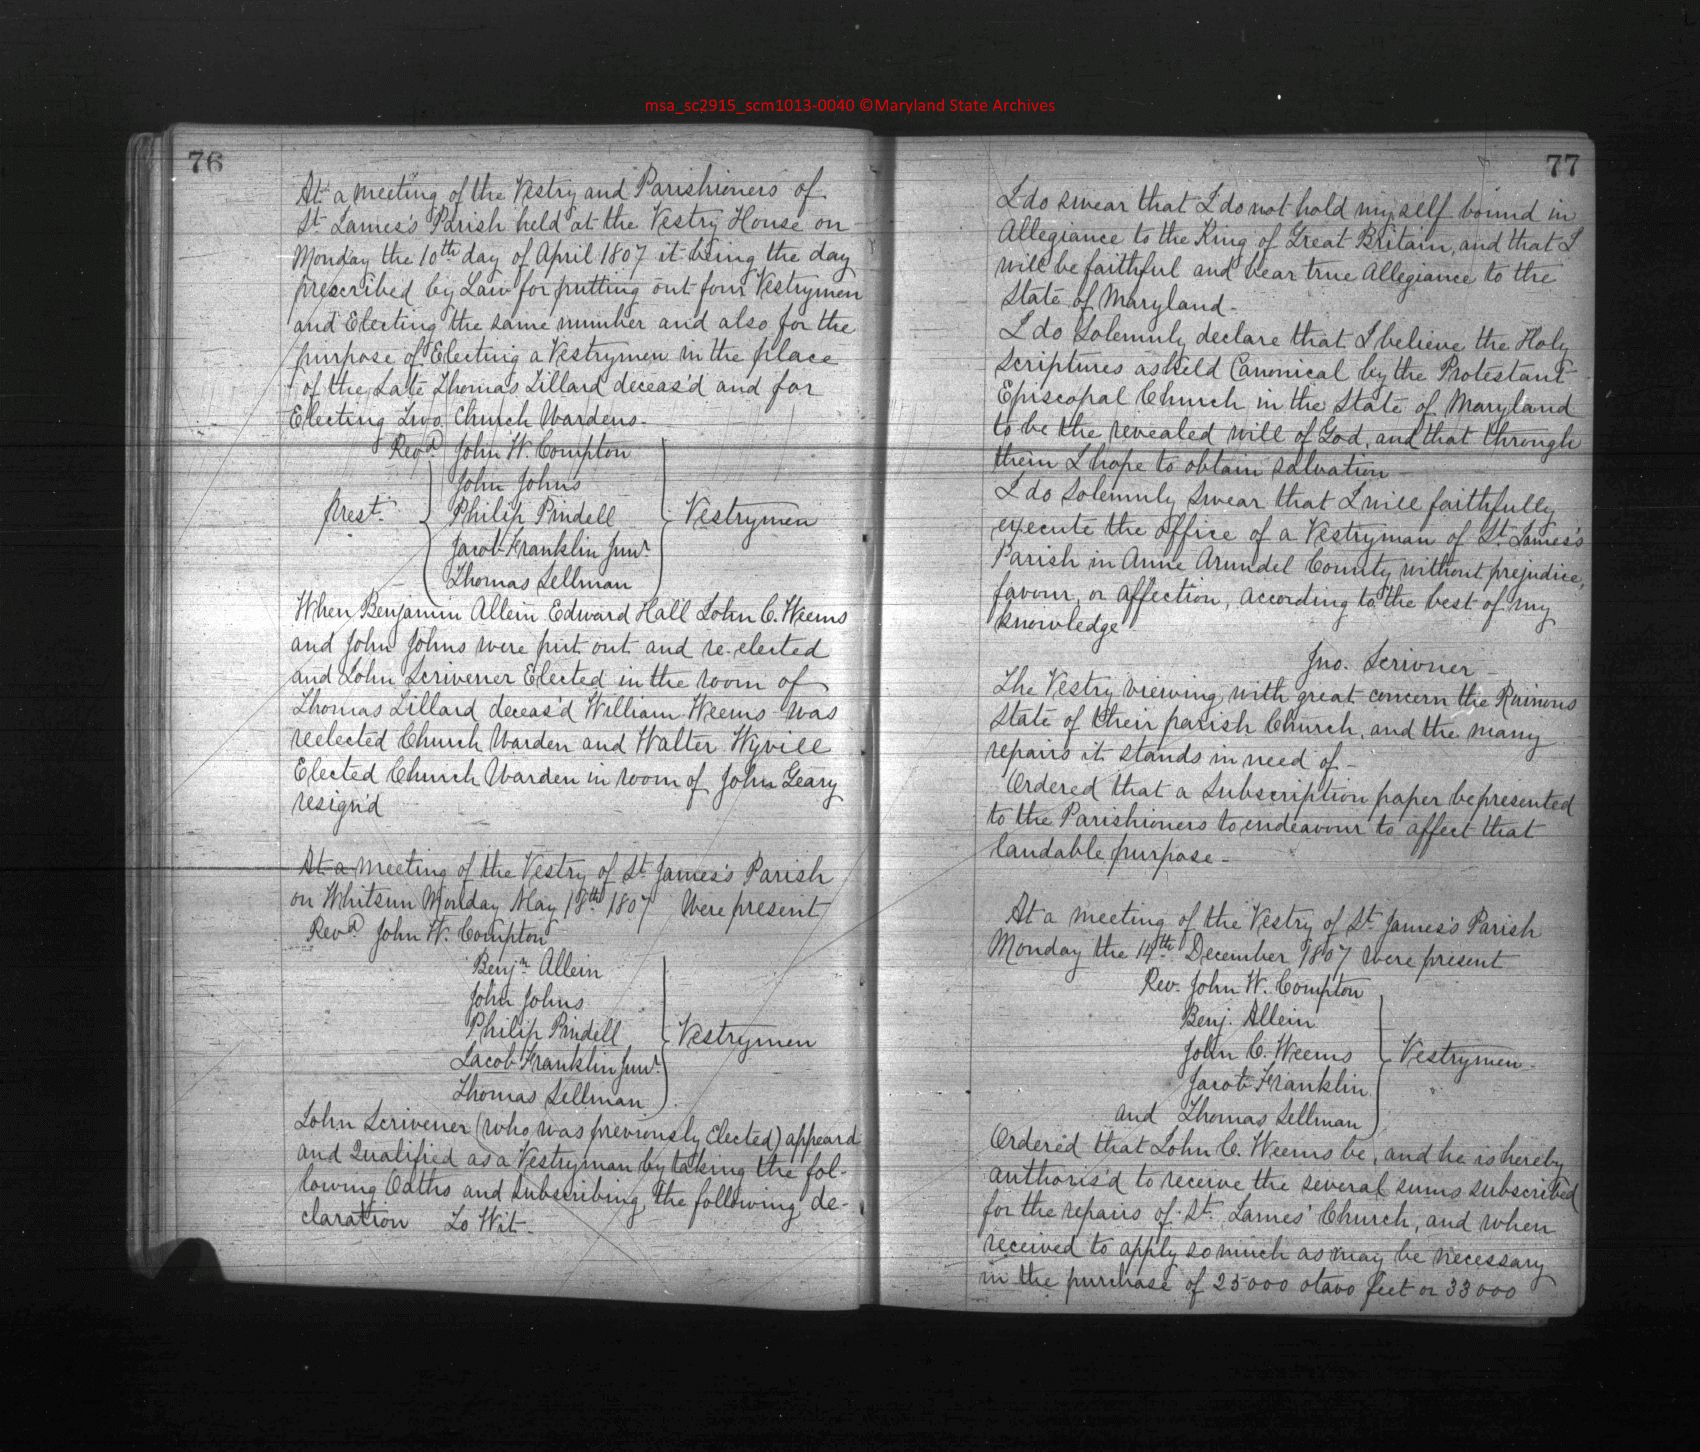 msa_sc2915_scm1013-0040 ©Maryland State Archives
76
At a meeting of the Vestry and Parishioners of
St James's Parish held at the Vestry House on
Monday the 10th day of April 1807 it being the day
prescribed by Law for putting out four Vestrymen
and Electing the same number and also for the
purpose of Electing a Vestrymen in the place
of the Late Thomas Tillard deceas'd and for
Electing Two Church Wardens.
Revd John W. Compton
John Johns
prest. Philip Pindell Vestrymen
Jacob Franklin Junr
Thomas Sellman
When Benjamin Allein Edward Hall John C. Weems
and John Johns were put out and re-elected
and John Scrivener Elected in the room of
Thomas Tillard deceas'd William Weems was
reelected Church Warden and Walter Wyvill
Elected Church Warden in room of John Geary
resign'd
At a meeting of the Vestry of St James's Parish
on Whitsun Monday May 18th 1807 Were present
Revd John W. Compton
Benjn Allein
John Johns
Philip Pindell Vestrymen
Jacob Franklin Junr
Thomas Sellman
John Scrivener (who was previously Elected) appeard
and Qualified as a Vestryman by taking the fol-
lowing Oaths and subscribing the following de-
claration To Wit-
77
I do swear that I do not hold myself bound in
Allegiance to the King of Great Britain, and that I
will be faithful and bear true Allegiance to the
State of Maryland-
I do Solemnly declare that I believe the Holy
Scriptures as held Canonical by the Protestant
Episcopal Church in the State of Maryland
to be the revealed will of God, and that through
them I hope to obtain salvation-
I do Solemnly Swear that I will faithfully
execute the office of a Vestryman of St James's
Parish in Anne Arundel County without prejudice,
favour, or affection, according to the best of my
knowledge
Jno. Scrivner-
The Vestry viewing with great concern the Ruinous
State of their parish Church, and the many
repairs it stands in need of-
Ordered that a Subscription paper be presented
to the Parishioners to endeavour to affect that
laudable purpose-
At a meeting of the Vestry of St James's Parish
Monday the 14th December 1807 were present
Rev. John W. Compton
Benj. Allein
John C. Weems Vestrymen
Jacob Franklin
and Thomas Sellman
Ordered that John C. Weems be, and he is hereby
authoris'd to receive the several sums subscribed
for the repairs of St. James' Church, and when
received to apply so much as may be necessary
in the purchase of 25000 otavo feet or 33000